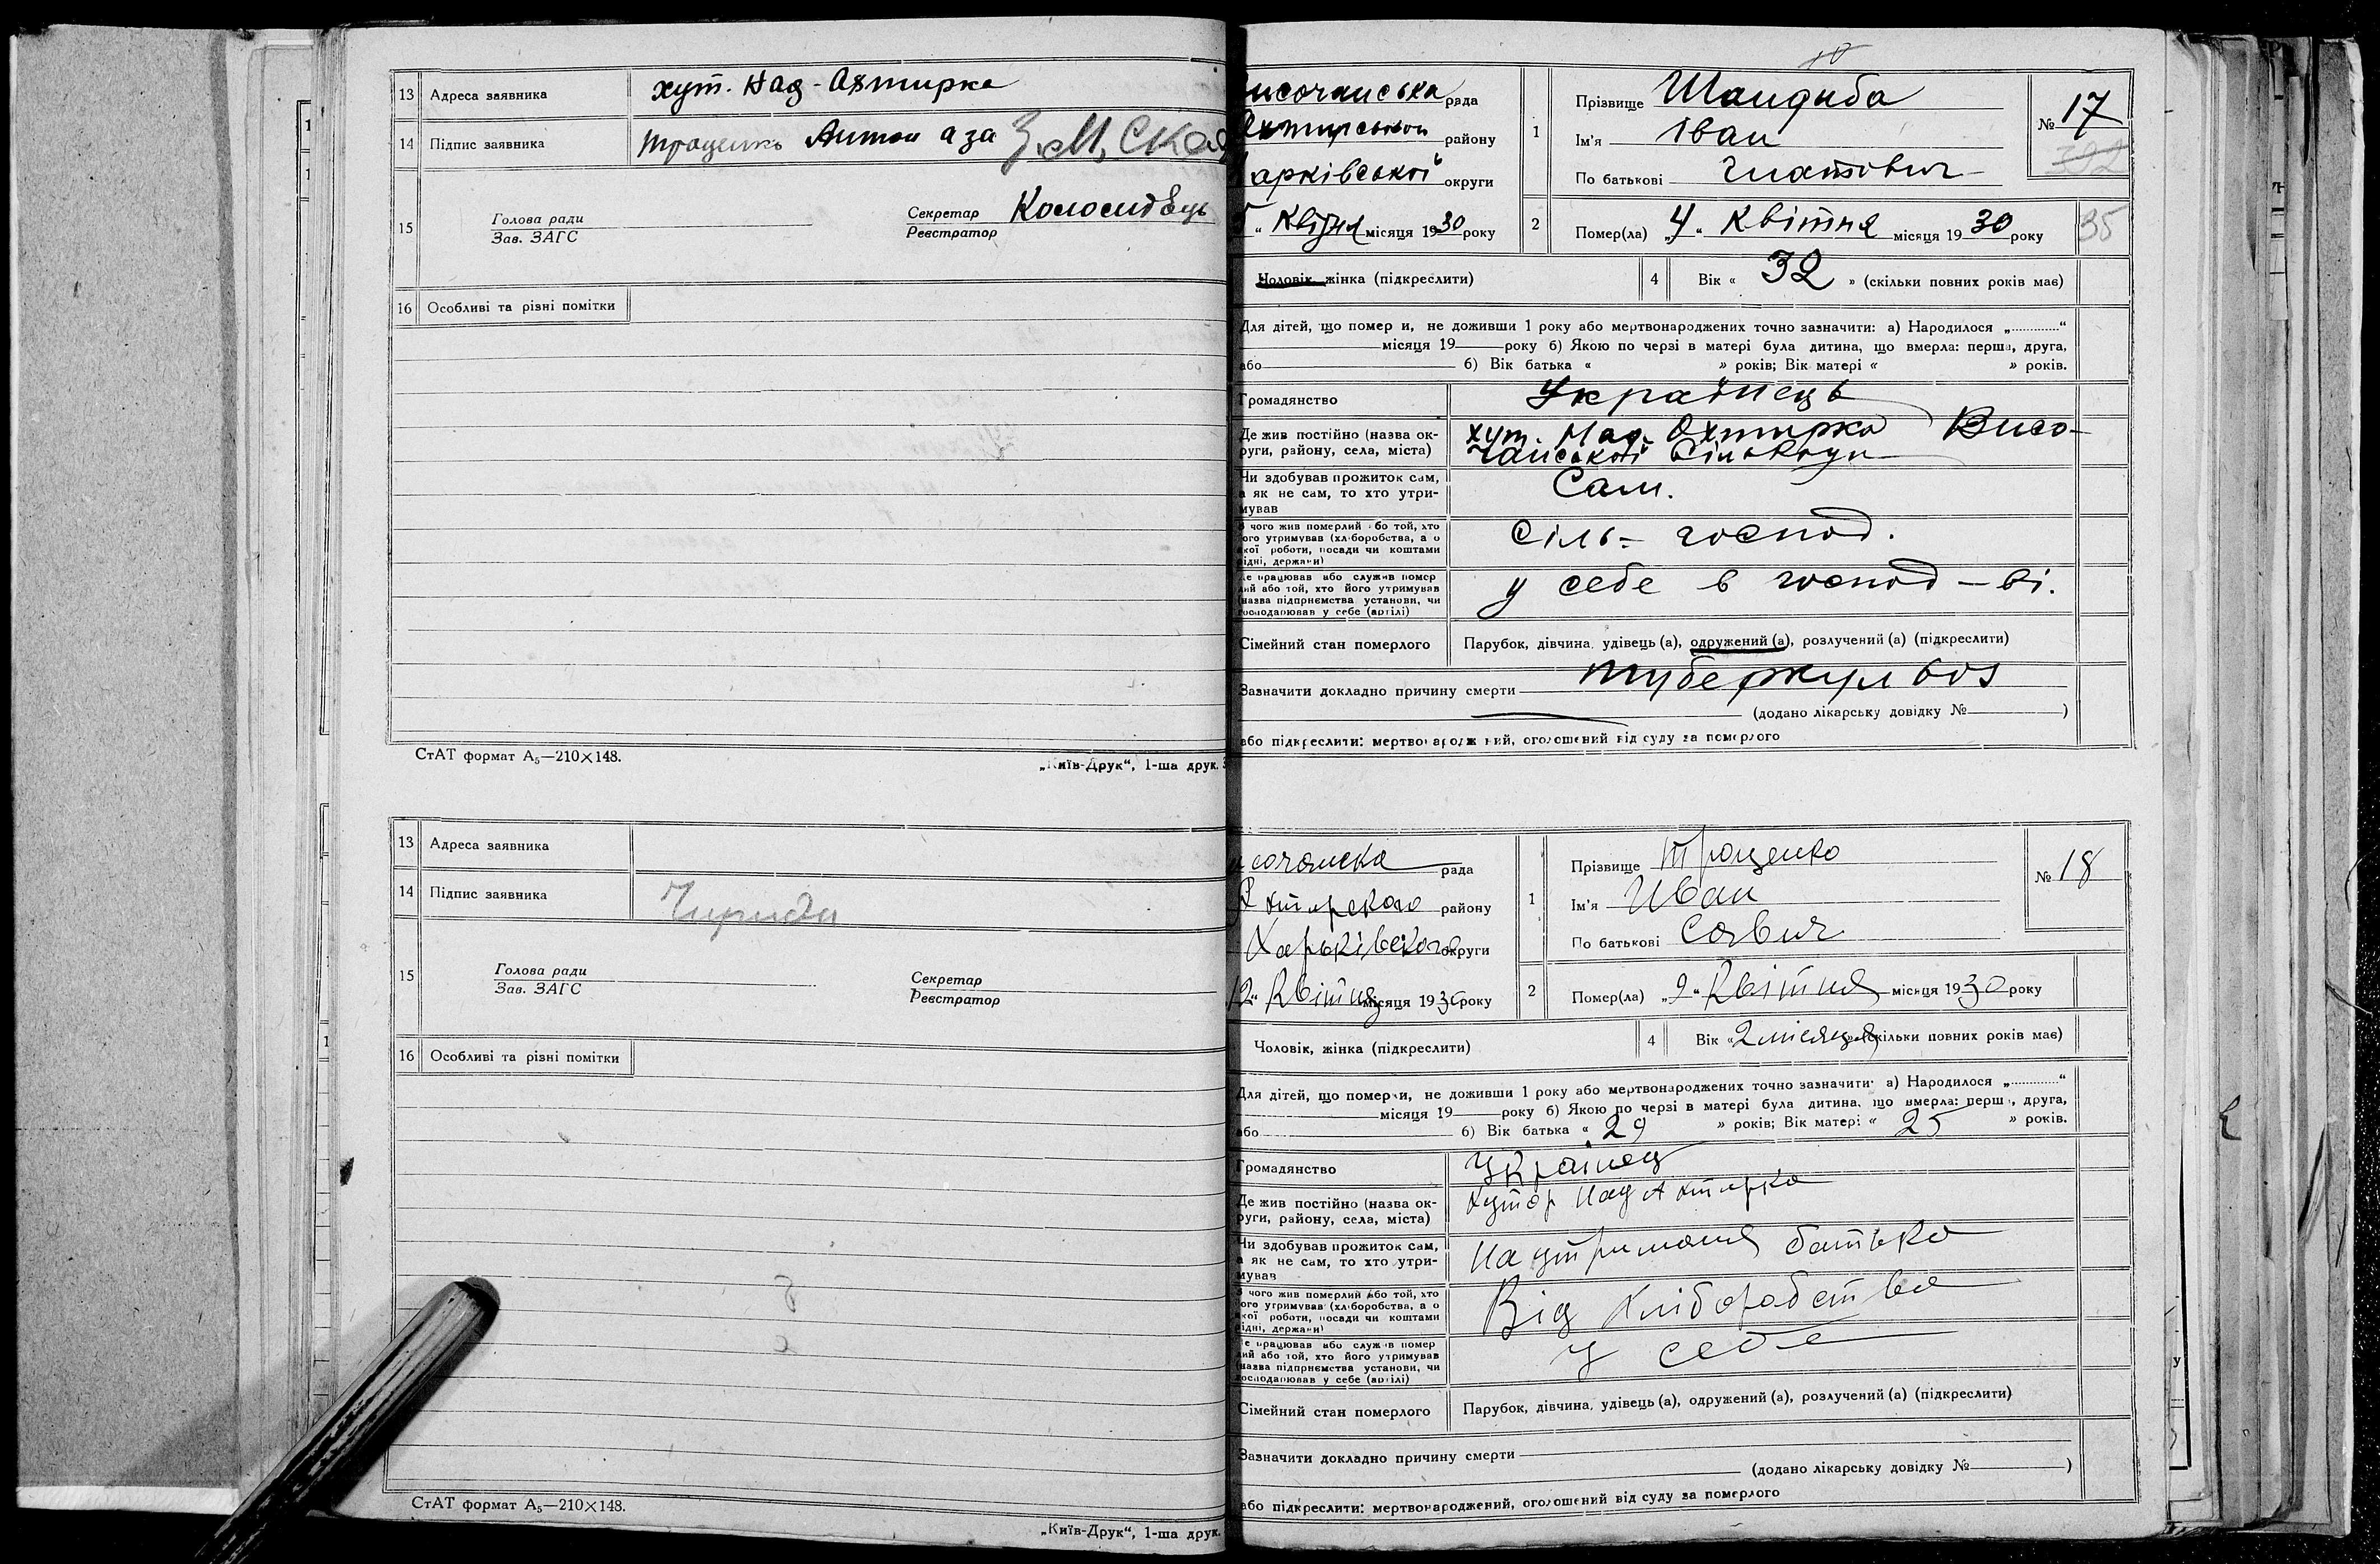 13 Адреса заявника хут. Над-Охтирка
14 Підпис заявника Троценко Антон а за
15 Голова ради
Зав. ЗАГС
Секретар
Реєстратор
16 Особливі та різні помітки
СтАТ формат А₅—210×148.
„Київ-Друк“, 1-ша друк.
13 Адреса заявника
14 Підпис заявника
15 Голова ради
Зав. ЗАГС
Секретар
Реєстратор
16 Особливі та різні помітки
СтАТ формат А₅—210×148.
„Київ-Друк“, 1-ша друк.
исочанська рада
Охтирської району
арківської округи
5 “ Квітня місяця 1930 року
1 Прізвище Шандиба
Ім'я Іван
По батькові Гнатович
№ 17
392
2 Помер(ла) „4“ Квітня місяця 1930 року
35
Чоловік, жінка (підкреслити)
4 Вік « 32 » (скільки повних років має)
Для дітей, що помер и, не доживши 1 року або мертвонароджених точно зазначити: а) Народилося „............“
місяця 19 року б) Якою по черзі в матері була дитина, що вмерла: перша, друга,
або б) Вік батька « » років; Вік матері « » років.
Громадянство Українець
Де жив постійно (назва ок-
руги, району, села, міста)
хут. Над-Охтирка Висо-
чанської Сільради
Чи здобував прожиток сам,
а як не сам, то хто утри-
мував
Сам.
З чого жив померлий або той, хто
його утримував (хліборобства, а о
якої роботи, посади чи коштами
рідні, держави)
сіль-господ.
Де працював або служив помер
лий або той, хто його утримував
(назва підприємства установи, чи
господарював у себе (артілі)
у себе в господ-ві.
Сімейний стан померлого
Парубок, дівчина, удівець (а), одружений (а), розлучений (а) (підкреслити)
Зазначити докладно причину смерти туберкульоз
(додано лікарську довідку № )
або підкреслити: мертвонароджений, оголошений від суду за померлого
исочанска рада
Ахтирского району
Харьківского округи
12“ Квітня місяця 1930 року
1 Прізвище Троценко
Ім'я Иван
По батькові Савич
№ 18
2 Помер(ла) „9“ Квітня місяця 1930 року
Чоловік, жінка (підкреслити)
4 Вік « 2 місяця » (скільки повних років має)
Для дітей, що померли, не доживши 1 року або мертвонароджених точно зазначити: а) Народилося „............“
місяця 19 року б) Якою по черзі в матері була дитина, що вмерла: перша, друга,
або б) Вік батька « 29 » років; Вік матері « 25 » років.
Громадянство Українец
Де жив постійно (назва ок-
руги, району, села, міста)
Хутор Над Ахтирка
Чи здобував прожиток сам,
а як не сам, то хто утри-
мував
На утриманя батька
З чого жив померлий або той, хто
його утримував (хліборобства, а о
якої роботи, посади чи коштами
рідні, держави)
Від хліборобства
Де працював або служив помер
лий або той, хто його утримував
(назва підприємства установи, чи
господарював у себе (артілі)
У себе
Сімейний стан померлого
Парубок, дівчина, удівець (а), одружений (а), розлучений (а) (підкреслити)
Зазначити докладно причину смерти
(додано лікарську довідку № )
або підкреслити: мертвонароджений, оголошений від суду за померлого